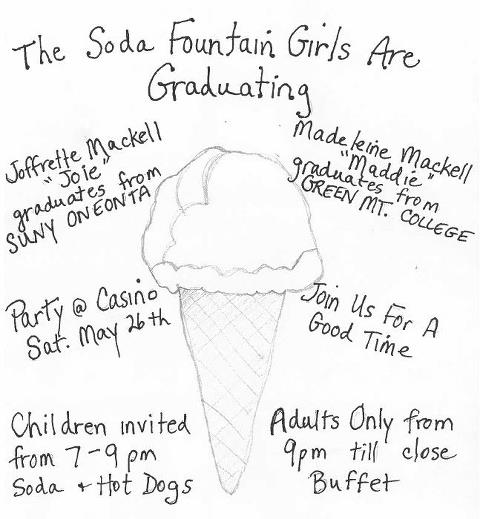 The Soda Fountain Girls Are
Graduating
Joffrette Mackell
"Joie"
graduates from
SUNY ONEONTA
Madeleine Mackell
"Maddie"
graduates from
GREEN MT. COLLEGE
Party @ Casino
Sat. May 26th
Join Us For A
Good Time
Children invited
from 7-9 pm
Soda + Hot Dogs
Adults Only from
9pm till close
Buffet